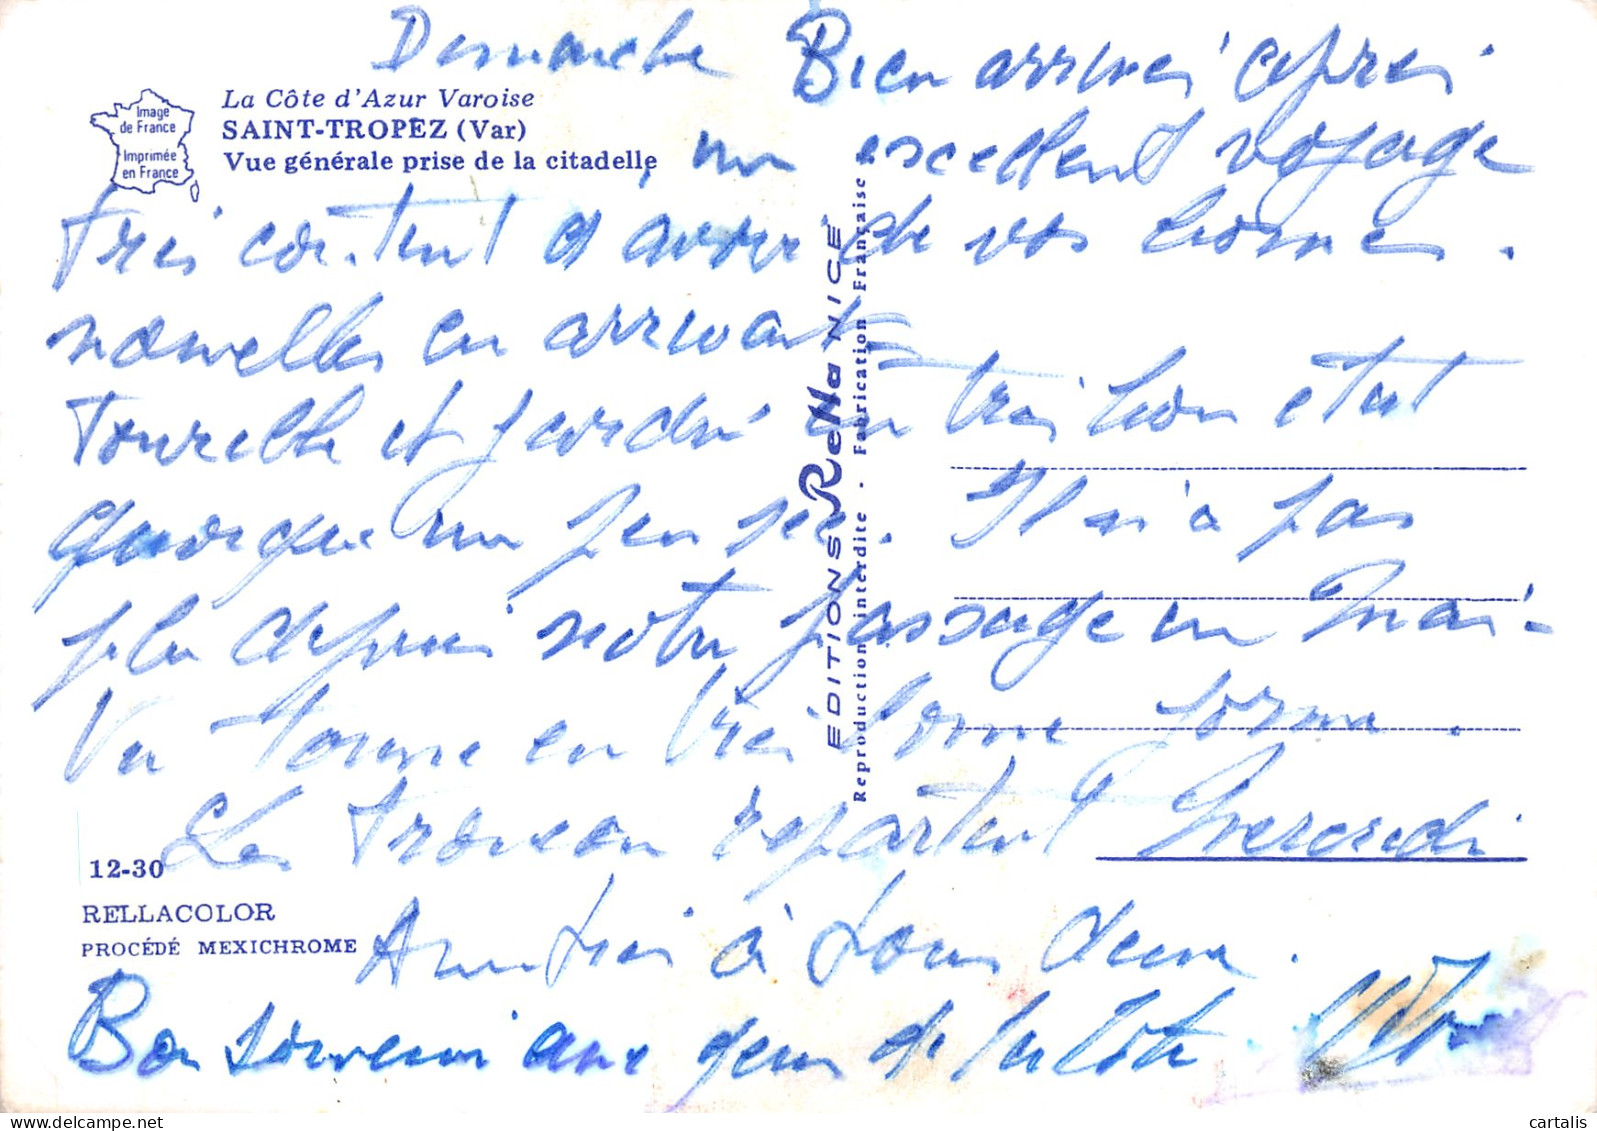 Dimanche
Bien arrivés après
La Côte d'Azur Varoise
SAINT-TROPEZ (Var)
Vue générale prise de la citadelle
Image
de France
Imprimée
en France
un excellent voyage
très content d avoir de vos bonnes.
nouvelles en arrivant
Tourelle et jardin en très bon etat
quoique un peu sec. Il n'a pas
plu depuis notre passage en Mai-
Vu Tonne en très bonne forme.
Les repartent Mercredi
12-30
RELLACOLOR
PROCÉDÉ MEXICHROME
Amitiés à tous deux.
Bon souvenir aux gens de
EDITIONS Rella NICE
Reproduction interdite - Fabrication Française
cartalis